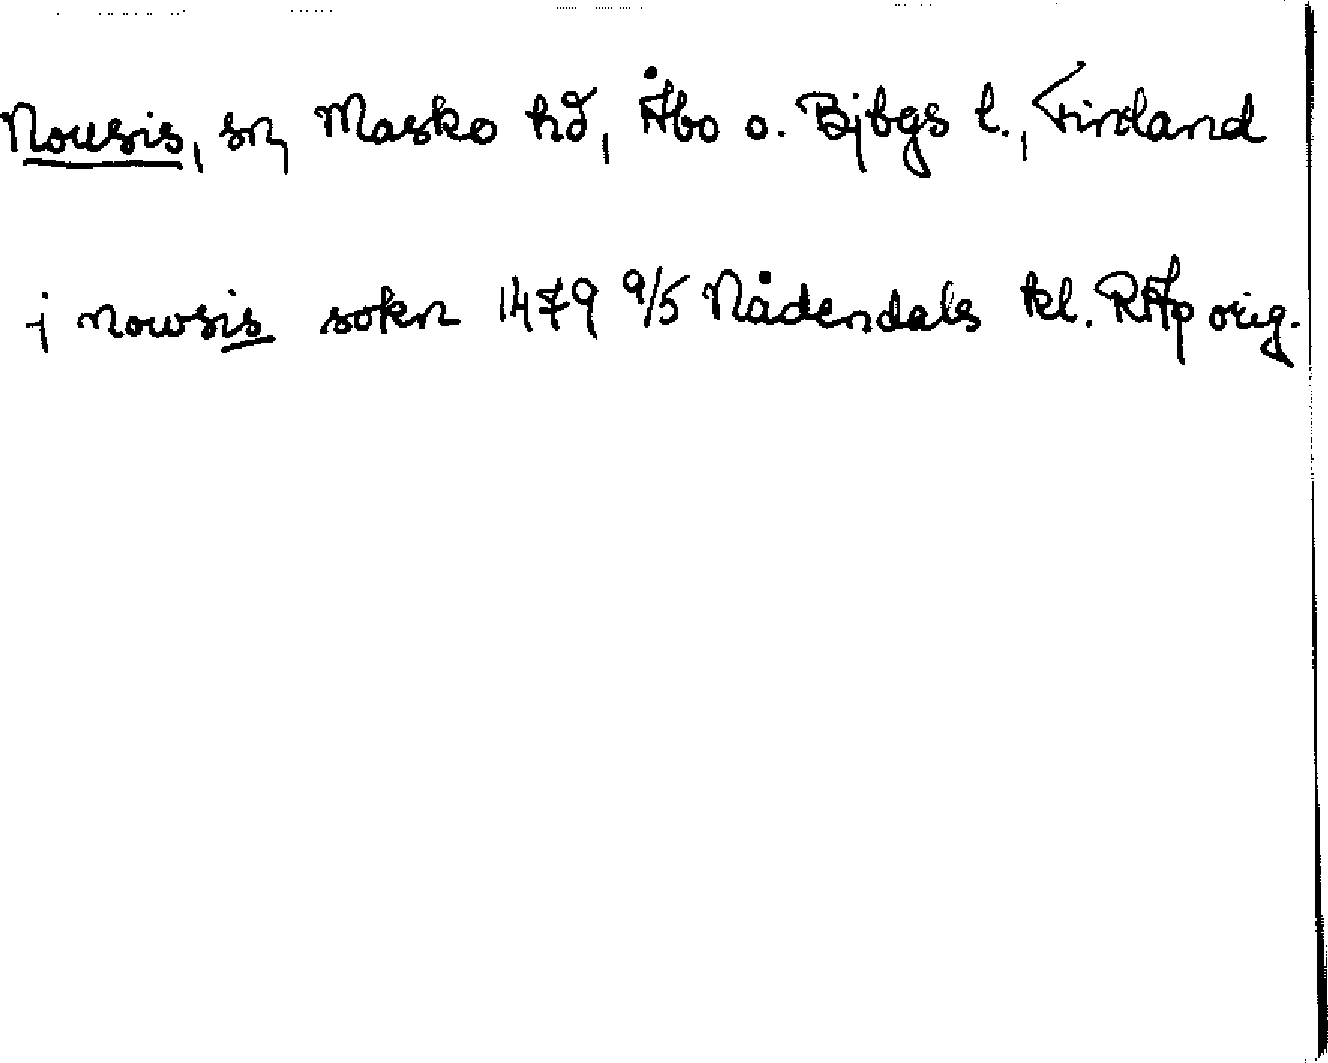 Nousis, sn, Masko hd, Åbo o. Bjbgs l., Finland
j nowsis sokn 1479 9/5 Nådendals kl. RAp orig.